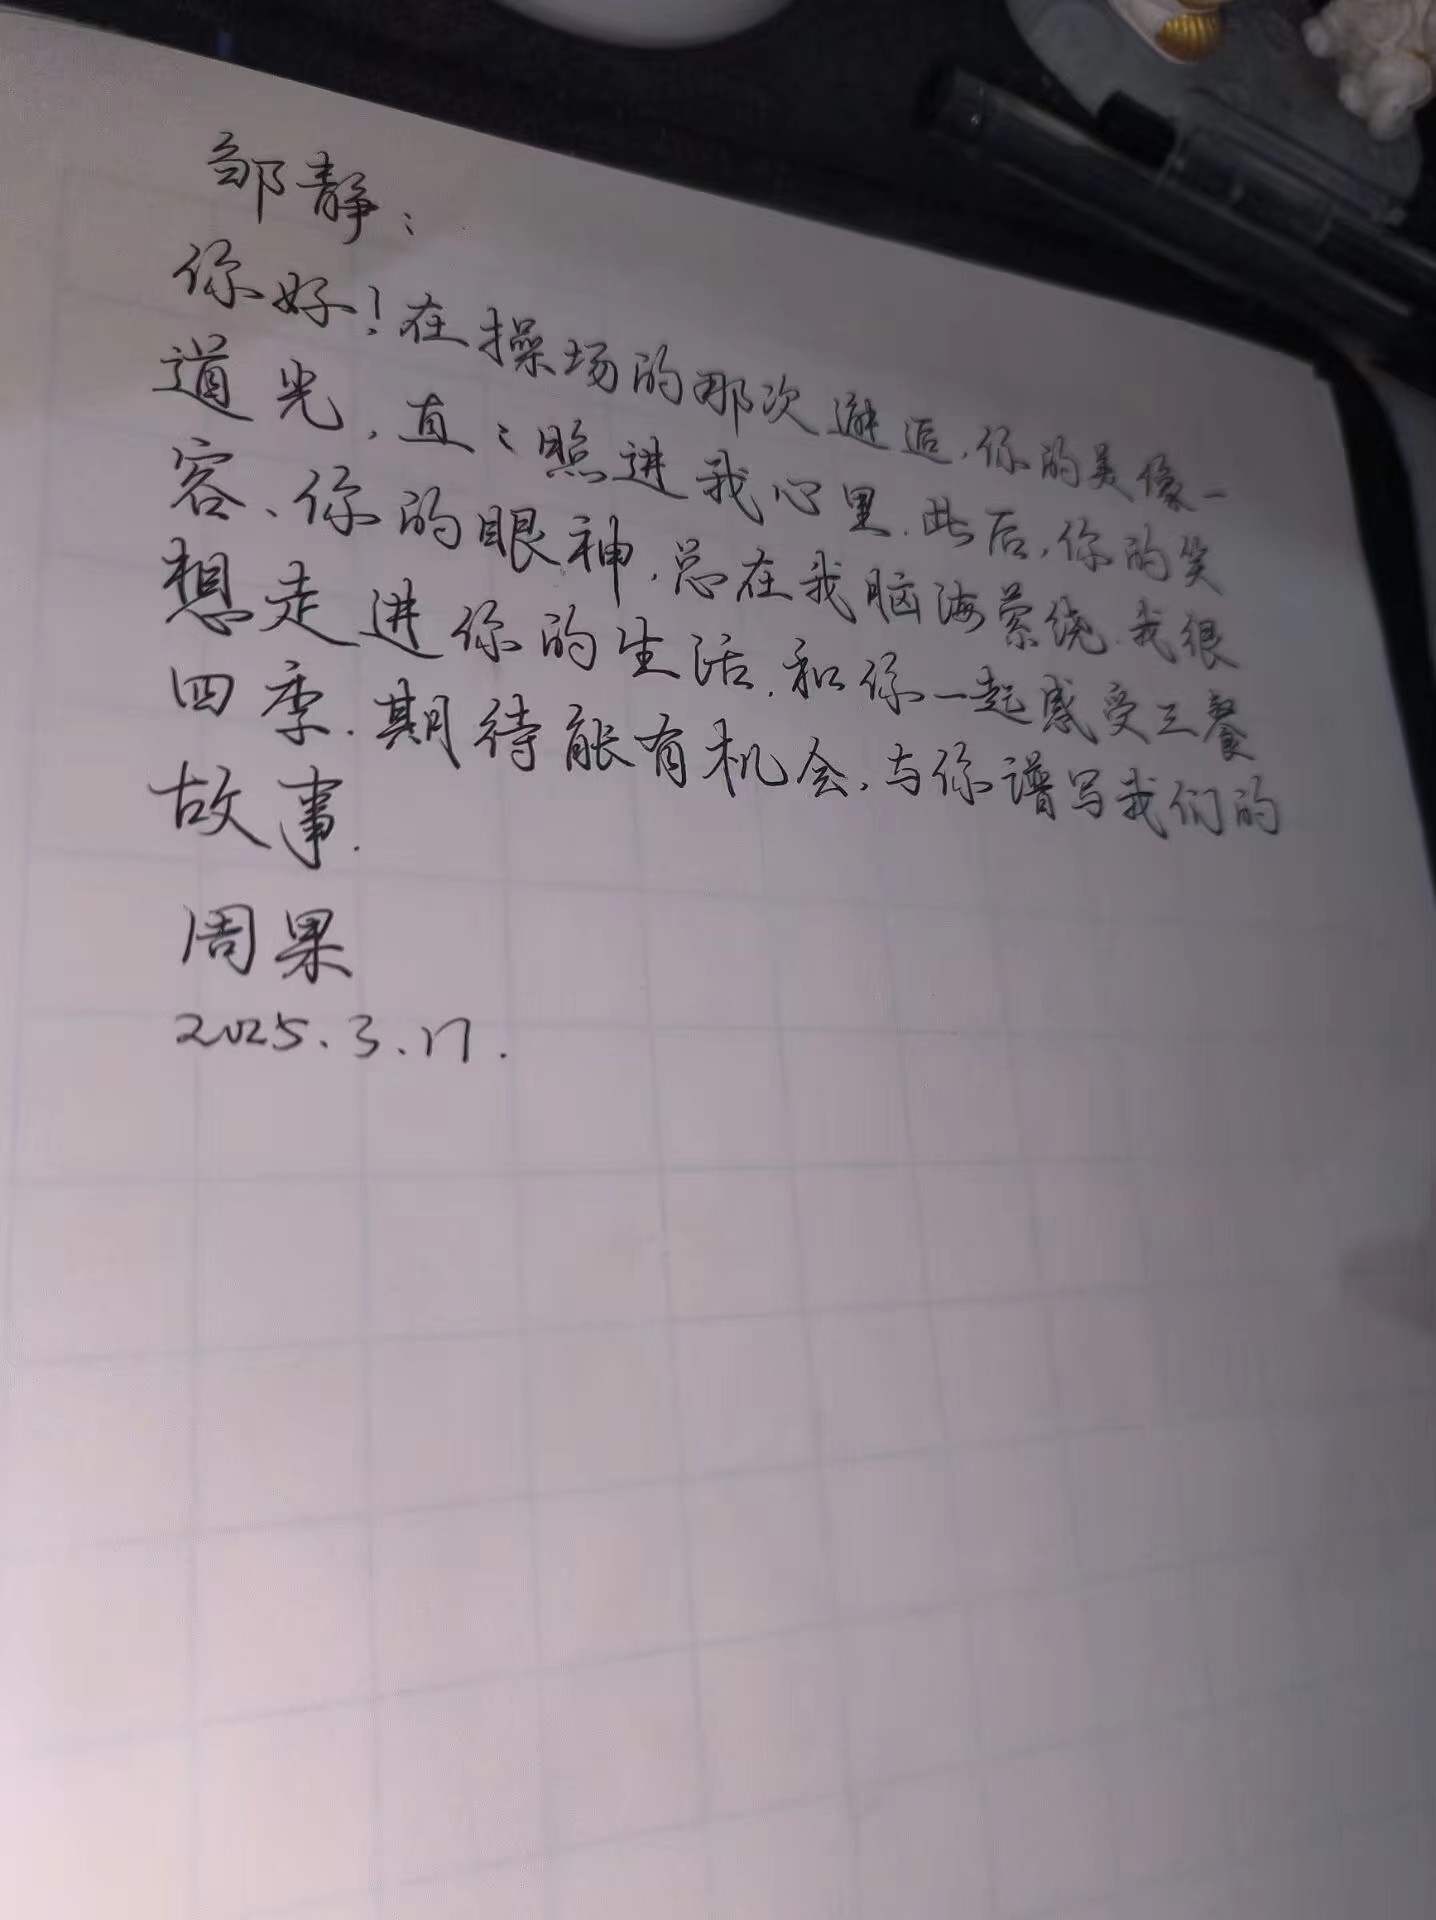 邹静：
你好！在操场的那次邂逅，你的美像一
道光，直直照进我心里.此后，你的笑
容、你的眼神，总在我脑海萦绕.我很
想走进你的生活，和你一起感受三餐
四季.期待能有机会，与你谱写我们的
故事.
周果
2025.3.17.